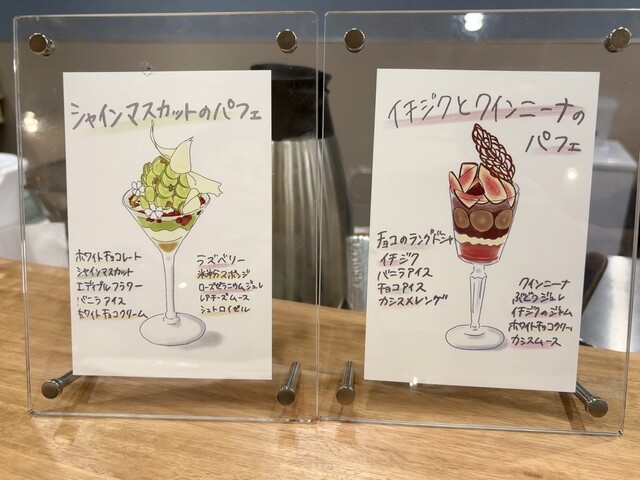 シャインマスカットのパフェ
ホワイトチョコレート
シャインマスカット
エディブルフラワー
バニラアイス
ホワイトチョコクリーム
ラズベリー
米粉スポンジ
ローズゼラニウムジュレ
レアチーズムース
シュトロイゼル
イチジクとクインニーナの
パフェ
チョコのラングドシャ
イチジク
バニラアイス
チョコアイス
カシスメレンゲ
クインニーナ
ぶどうジュレ
イチジクのジャム
ホワイトチョコクリーム
カシスムース